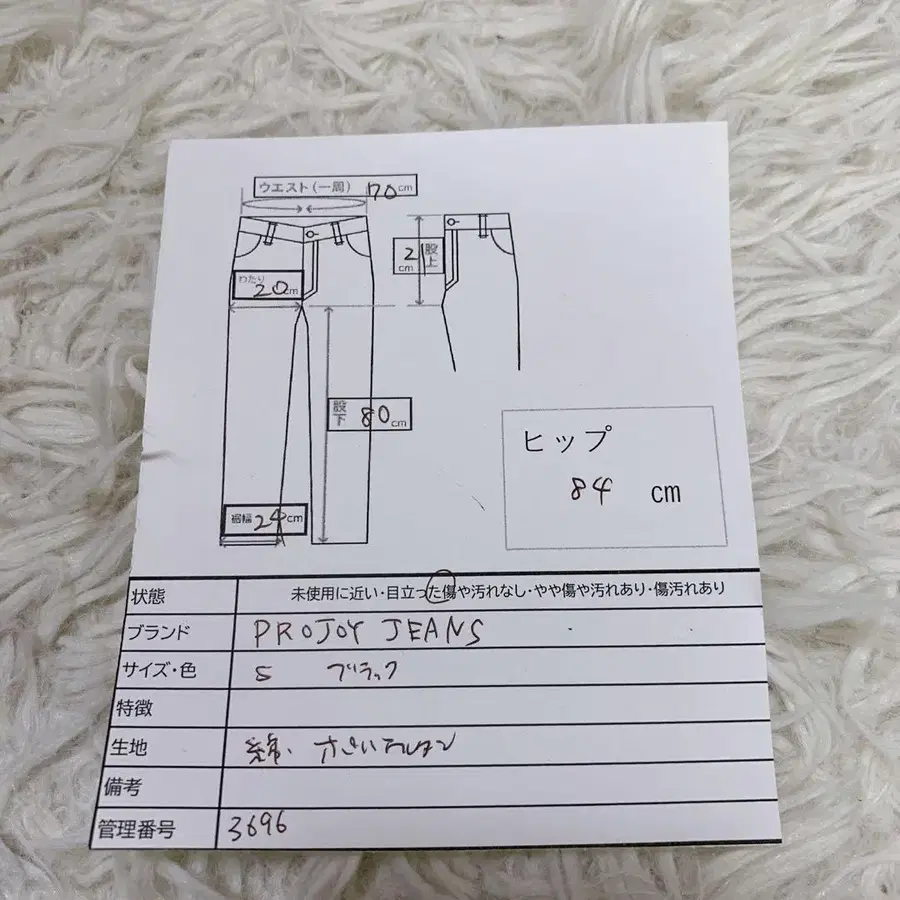 ウエスト(一周) 70cm
21cm 股上
わたり 20cm
股下 80cm
ヒップ
84 cm
裾幅 24cm
状態 未使用に近い・目立った傷や汚れなし・やや傷や汚れあり・傷汚れあり
ブランド PROJOY JEANS
サイズ・色 S ブラック
特徴
生地 綿・ポリウレタン
備考
管理番号 3696